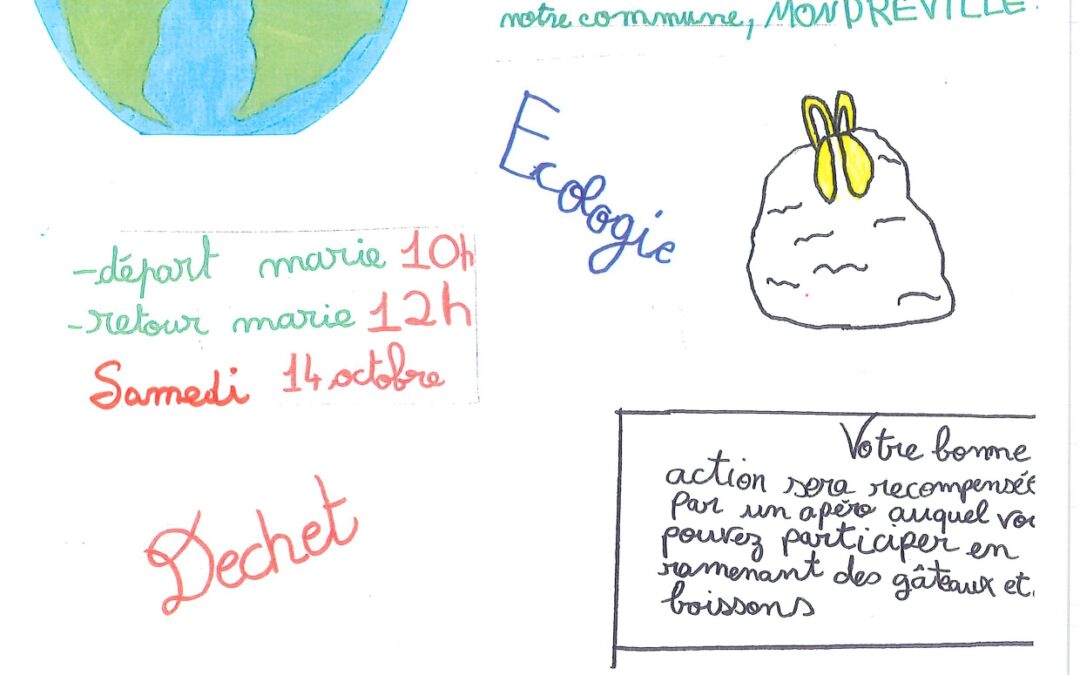 notre commune, MONDREVILLE.
Ecologie
-départ marie 10h
-retour marie 12h
Samedi 14 octobre
Dechet
Votre bonne
action sera recompensée
par un apéro auquel vou
pouvez participer en
ramenant des gâteaux et
boissons